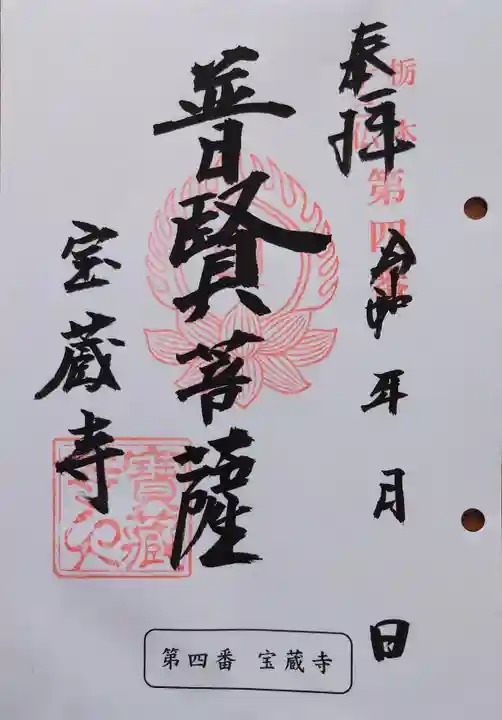 奉拝
栃木
第四番
令和 年 月 日
普賢菩薩
宝蔵寺
寶蔵
寺
第四番 宝蔵寺